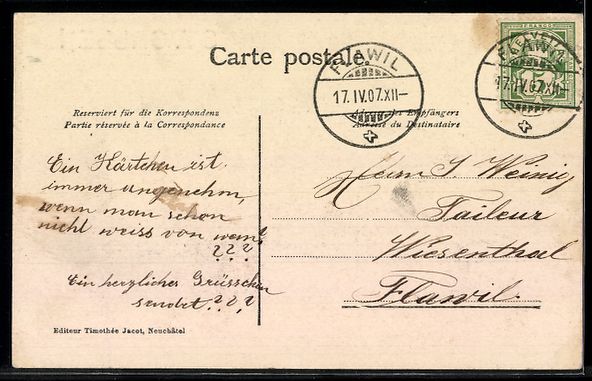 Carte postale
FLAWIL
17.IV.07.XII–
FLAWIL
17.IV.07.XII–
HELVETIA
FRANCO
5
Reserviert für die Korrespondenz
Partie réservée à la Correspondance
Adresse des Empfängers
Adresse du Destinataire
Ein Kärtchen ist
immer angenehm,
wenn man schon
nicht weiss von wem?
???
Ein herzliches Grüsschen
sendet ???
Herrn J. Weinig
Taileur
Wiesenthal
Flawil.
Editeur Timothée Jacot, Neuchâtel